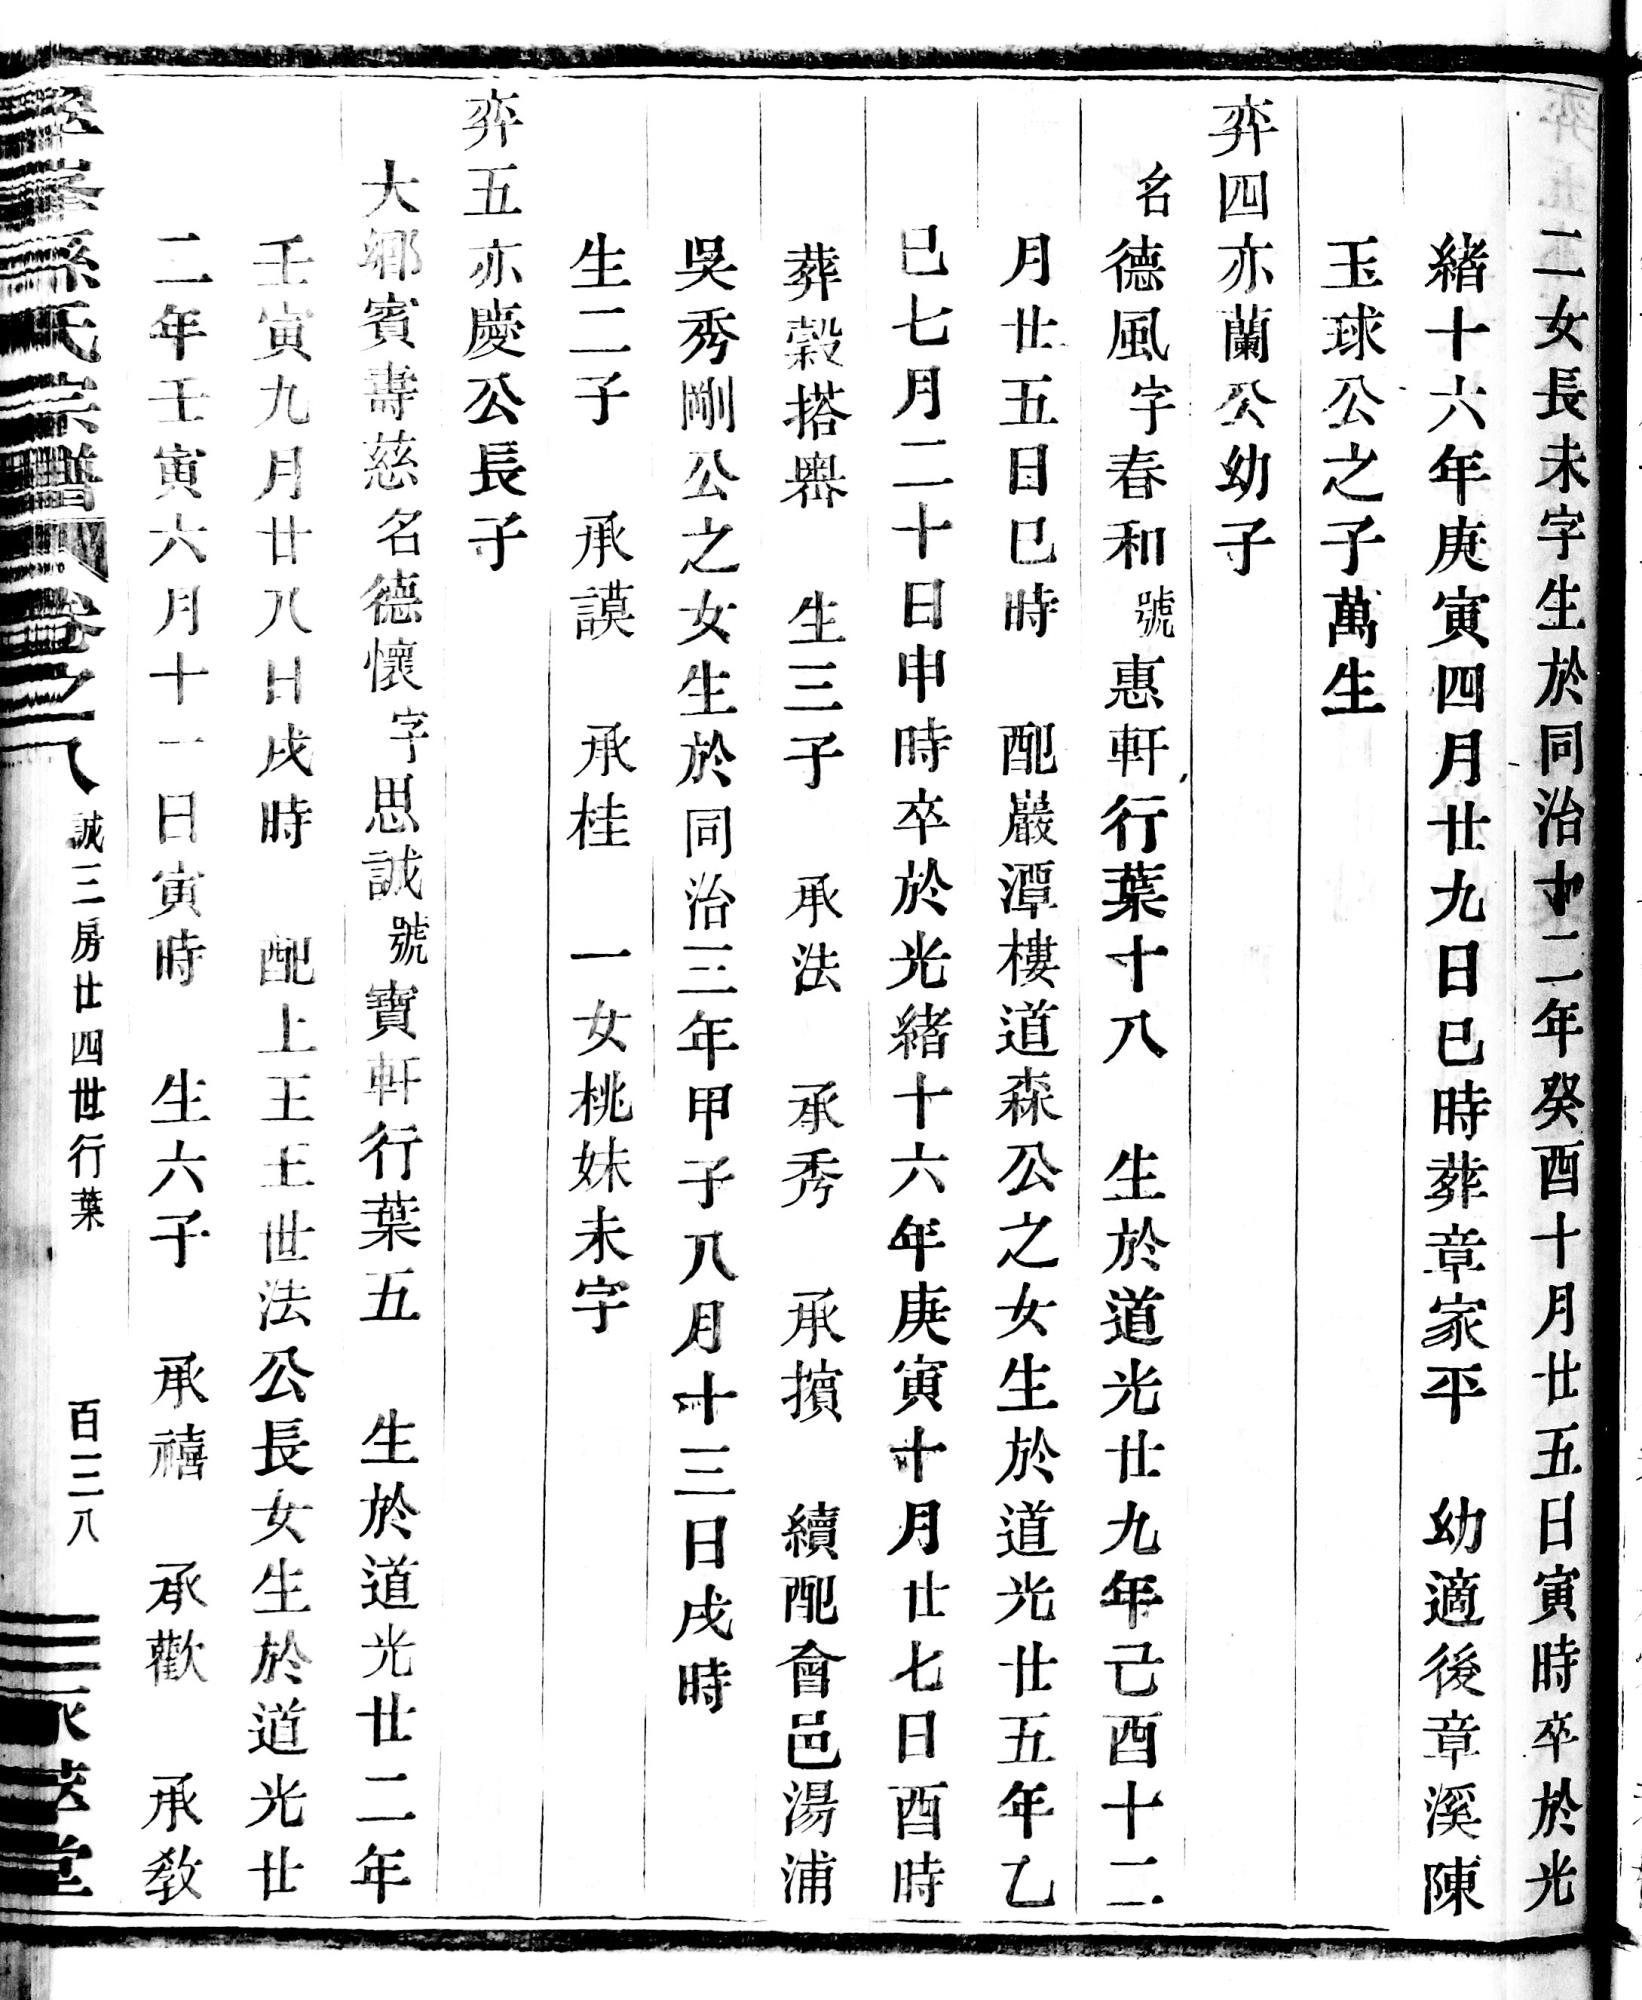 二女長未字生於同治十二年癸酉十月廿五日寅時卒於光
緒十六年庚寅四月廿九日巳時葬章家平　幼適後章溪陳
玉球公之子萬生
弈四亦蘭公幼子
名德風字春和號惠軒行葉十八　生於道光廿九年己酉十二
月廿五日巳時　配巖潭樓道森公之女生於道光廿五年乙
巳七月二十日申時卒於光緒十六年庚寅十月廿七日酉時
葬穀搭嶴　生三子　承法　承秀　承擯　續配會邑湯浦
吳秀剛公之女生於同治三年甲子八月十三日戌時
生二子　承謨　承桂　一女桃妹未字
弈五亦慶公長子
大鄉賓壽慈名德懷字思誠號寶軒行葉五　生於道光廿二年
壬寅九月廿八日戌時　配上王王世法公長女生於道光廿
二年壬寅六月十一日寅時　生六子　承禧　承歡　承教
孫氏宗譜　卷之八　誠三房廿四世行葉　百三八　堂